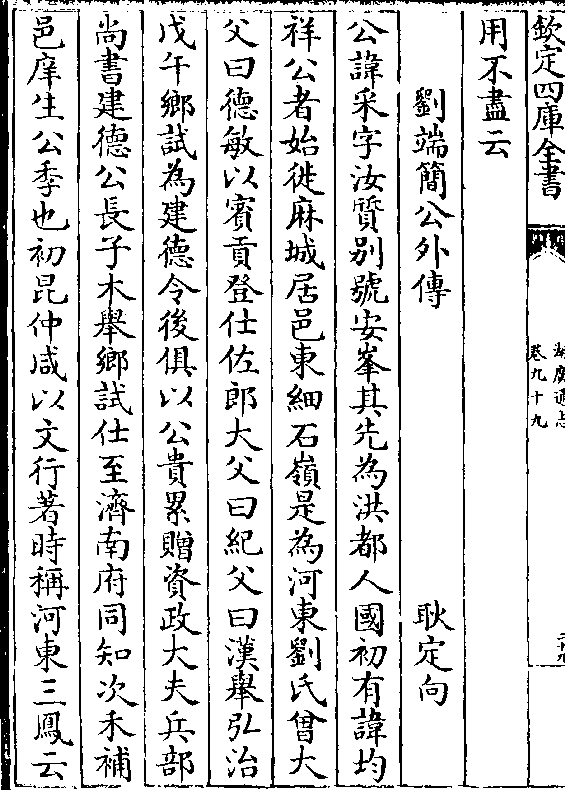 欽定四庫全書
湖廣通志
卷九十九
用不盡云
劉端簡公外傳 耿定向
公諱采字汝質别號安峯其先為洪都人國初有諱均
祥公者始徙麻城居邑東細石嶺是為河東劉氏曾大
父曰德敏以賓貢登仕佐郎大父曰紀父曰漢舉弘治
戊午鄉試為建德令後俱以公貴累贈資政大夫兵部
尚書建德公長子木舉鄉試仕至濟南府同知次禾補
邑庠生公季也初昆仲咸以文行著時稱河東三鳳云